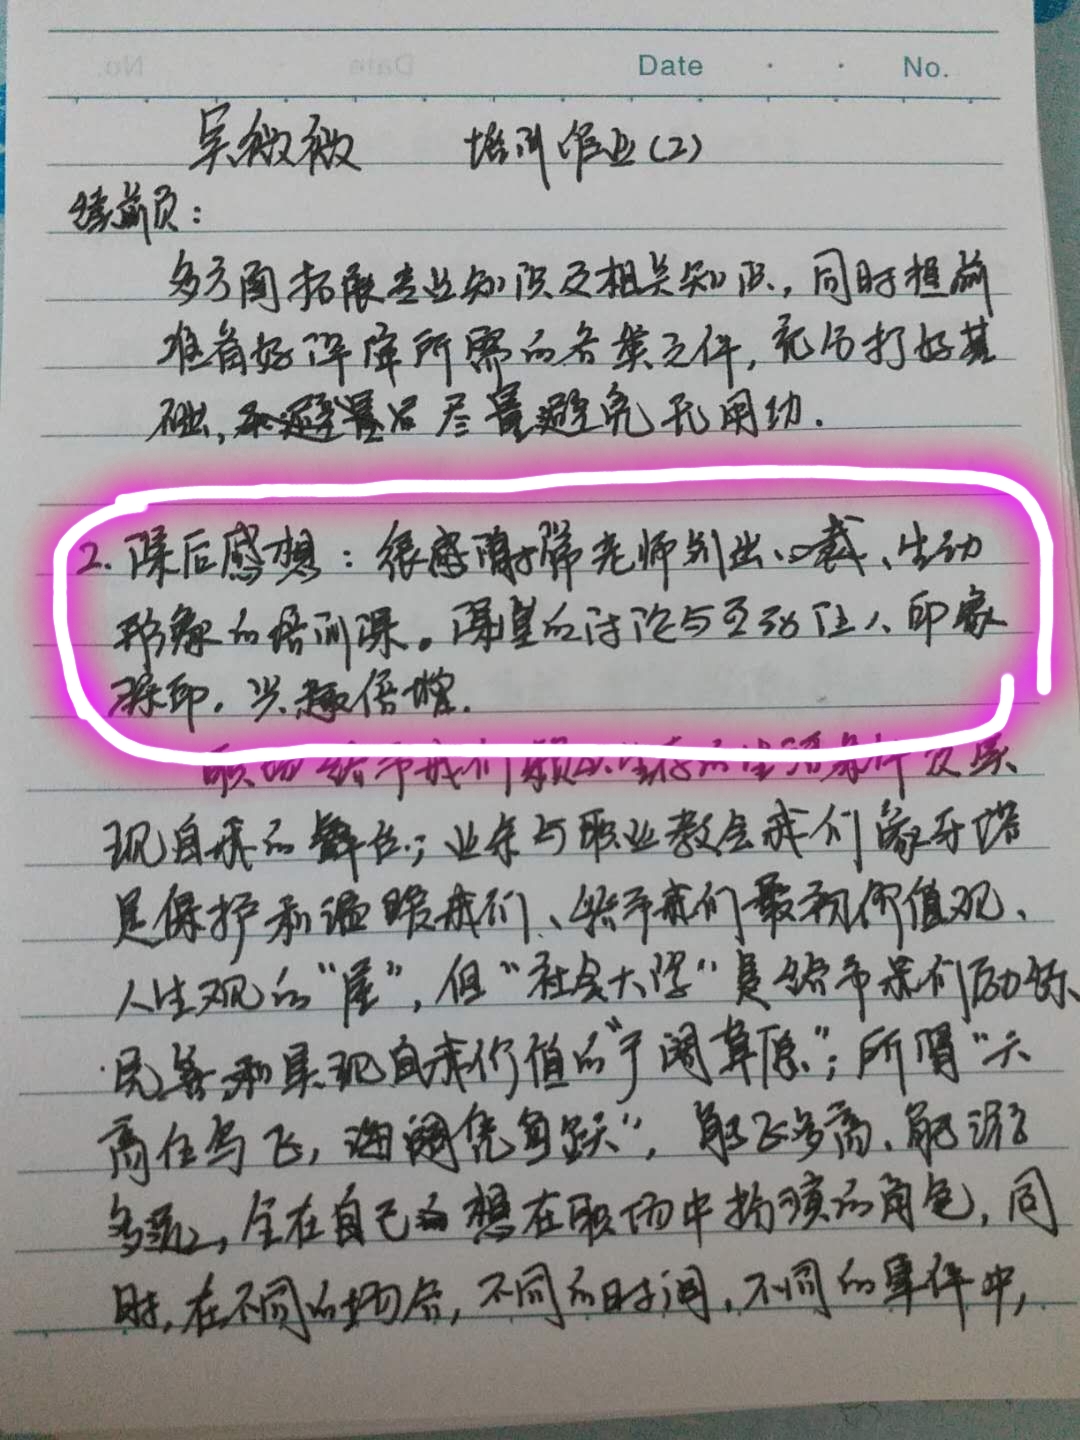 Date · · No.
吴微微 培训作业(2)
续前页：
多方面拓展专业知识及相关知识，同时提前
准备好保障所需的各类文件，充分打好基
础，尽量避免无用功.
2. 课后感想：很感谢老师别出心裁、生动
形象的培训课。课堂的讨论与互动让人印象
深印，兴趣倍增.
职场给予我们生存的生活条件及实
现自我的舞台；业余与职业教会我们象牙塔
是保护和温暖我们、给予我们最初价值观、
人生观的“屋”，但“社会大学”是给予我们历练、
完善和实现自我价值的“广阔草原”；所谓“天
高任鸟飞，海阔凭鱼跃”，能飞多高、能游
多远，全在自己想在职场中扮演的角色，同
时，在不同的场合，不同的时间，不同的事件中，